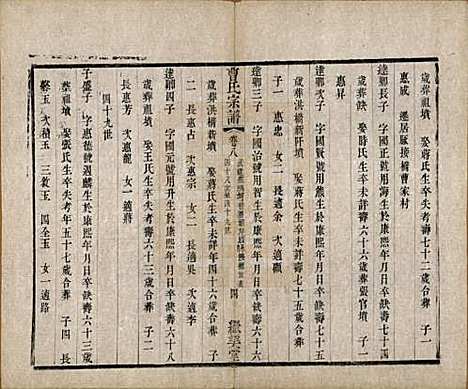 歲葬祖墳 娶蔣氏生卒失考壽七十二歲合葬 子一
惠威 遷居豚接橋曹家村
達卿子 字國正號用海生於康熙年月日卒缺壽六十五
歲葬缺 娶時氏生卒未詳壽六十六歲葬張官墳 子一
惠昇
達卿二子 字國賢號用熊生於康熙年月日卒缺壽七十
歲葬洪橋新阡墳 娶蔣氏生卒未詳壽七十五歲合葬
子一 惠忍 女二 長適余 次適顧
達卿三子 字國治號用智生於康熙年月日卒缺壽六十
歲葬洪橋新墳 娶蔣氏生卒未詳年四十八歲合葬 子
二 長惠占 次惠宗 女二 長適吳 次適李
曹氏宗譜 卷八
四 繼美堂
達卿四子 字國元號用升生於康熙年月日卒缺壽六十八
歲葬祖墳 娶王氏生卒失考壽六十三歲合葬 子二
長惠芳 次惠龍 女一適蔣
四十九世
子盛子 字惠德號遇麟生於康熙年月日卒缺壽六十三歲
葬祖墳 娶張氏生卒失考年五十七歲合葬 子四 長
繫玉 次積玉 三敘玉 四全玉 女一適路